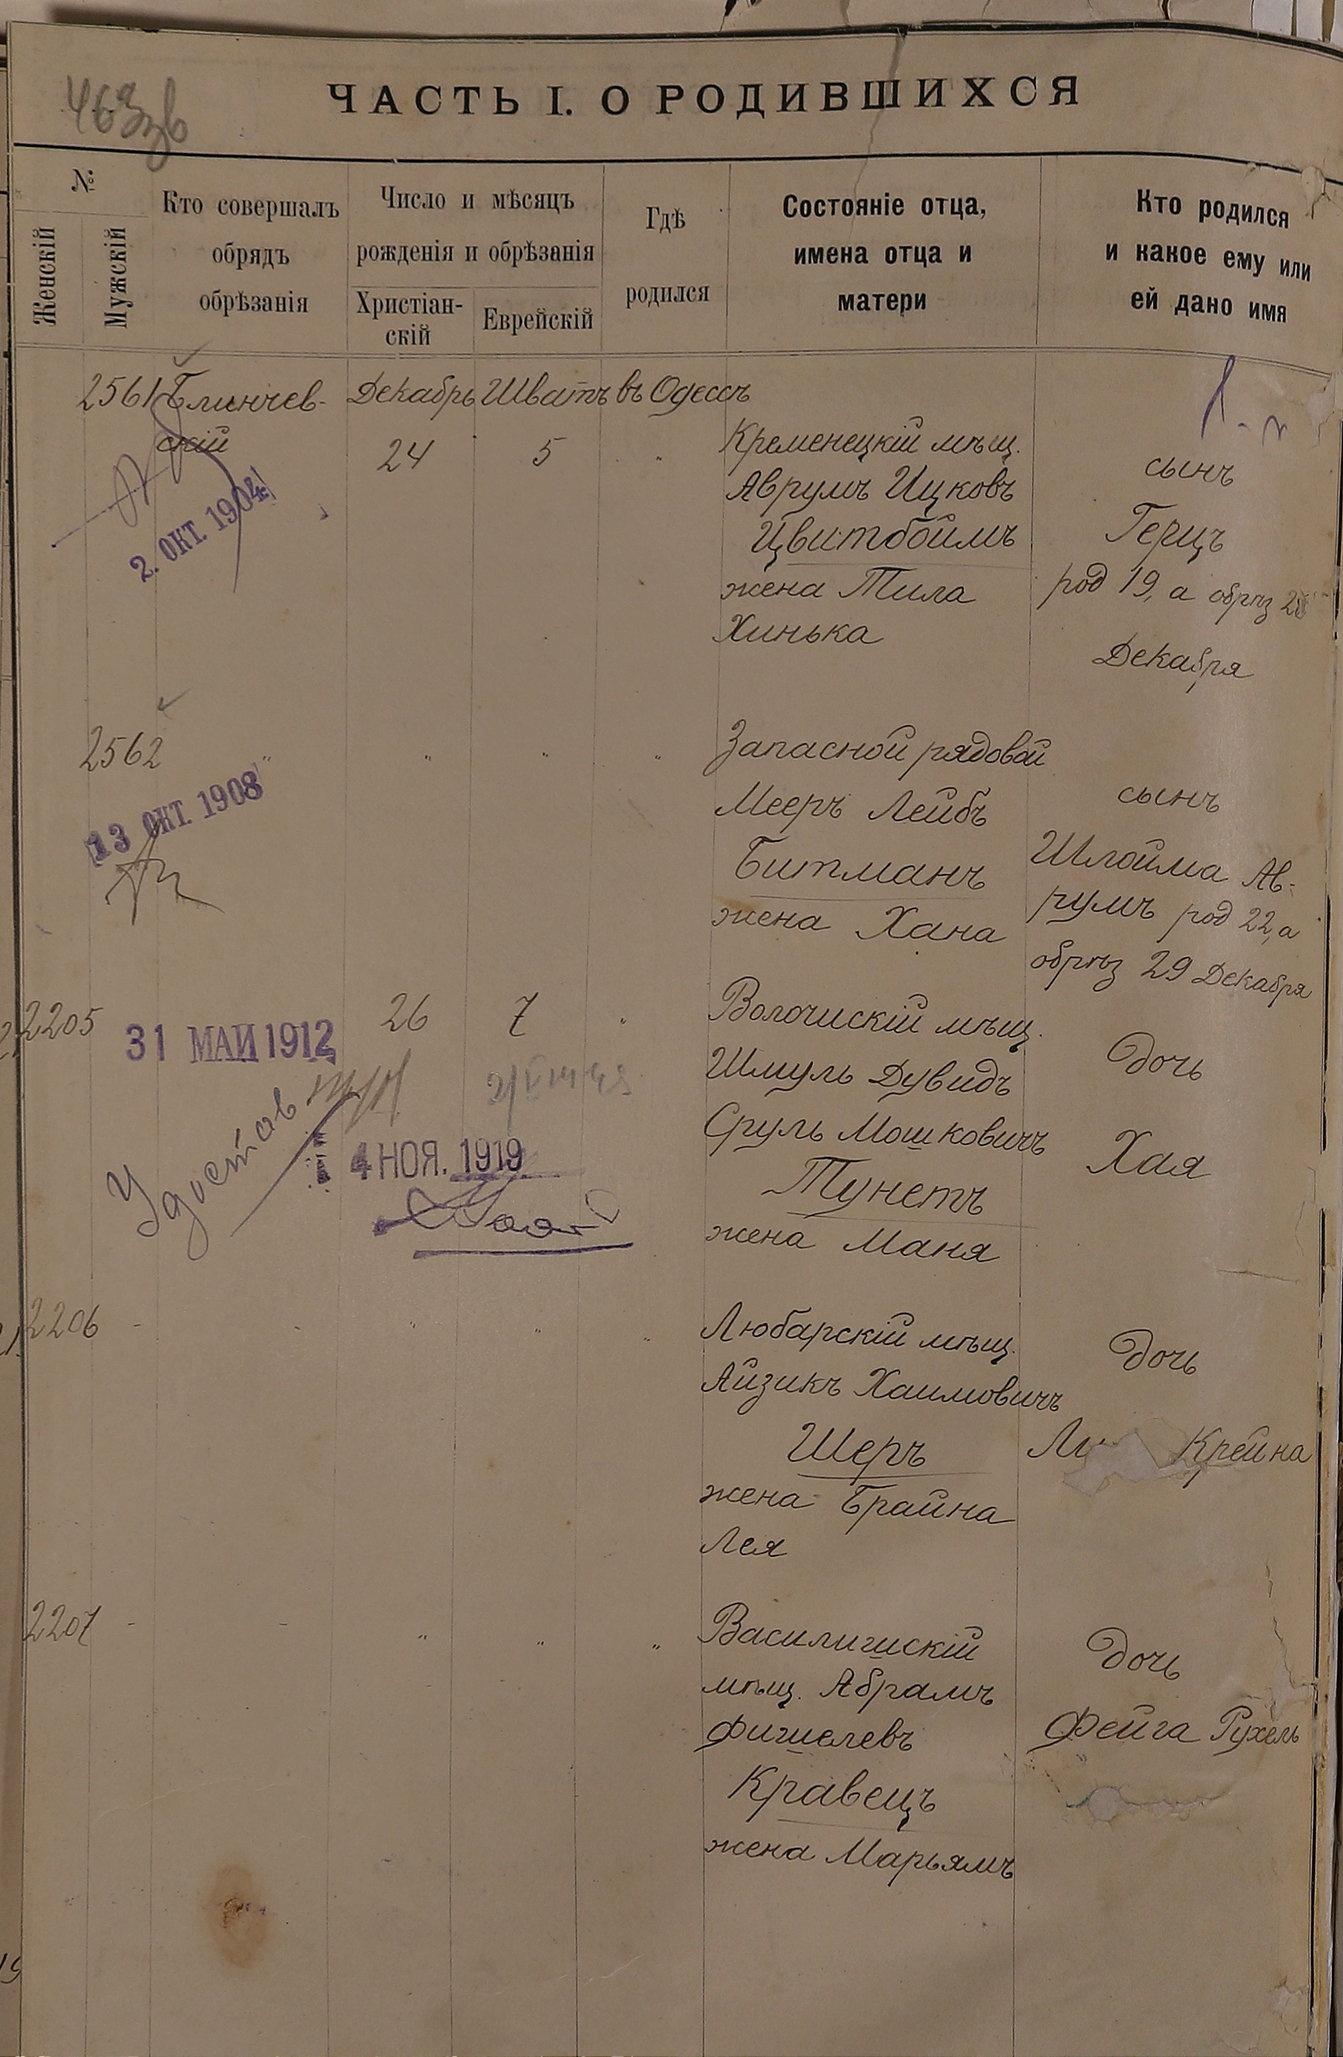 463
ЧАСТЬ I. О РОДИВШИХСЯ
№
Женскій
Мужскій
Кто совершалъ
обрядъ
обрѣзанія
Число и мѣсяцъ
рожденія и обрѣзанія
Христіан-
скій
Еврейскій
Гдѣ
родился
Состояніе отца,
имена отца и
матери
Кто родился
и какое ему или
ей дано имя
2561 Блинчев-
скій
Декабрь Шватъ въ Одессѣ
24 5 "
2. ОКТ. 1904
Кременецкій мѣщ.
Аврумъ Ицковъ
Цвитбоймъ
жена Тила
Хинька
сынъ
Герцъ
род 19, а обрѣз
Декабря
2562 " " " "
13 ОКТ. 1908
Запасной рядовой
Мееръ Лейбъ
Битманъ
жена Хана
сынъ
Шлойма Ав-
румъ род 22, а
обрѣз 29 Декабря
2205 26 7 "
31 МАЙ 1912
Удостов
4 НОЯ. 1919
Волочискій мѣщ.
Шмуль Дувидъ
Сруль Мошковичъ
Тунетъ
жена Маня
дочь
Хая
2206 - - " " "
Любарскій мѣщ.
Айзикъ Хаимовичъ
Шеръ
жена Брайна
Лея
дочь
Крейна
2207 - - " " "
Василишскій
мѣщ. Абрамъ
Фишелевъ
Кравецъ
жена Марьямъ
дочь
Фейга Рухель